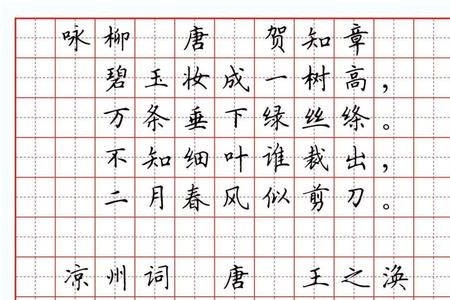 咏柳 唐 贺知章
碧玉妆成一树高，
万条垂下绿丝绦。
不知细叶谁裁出，
二月春风似剪刀。
凉州词 唐 王之涣